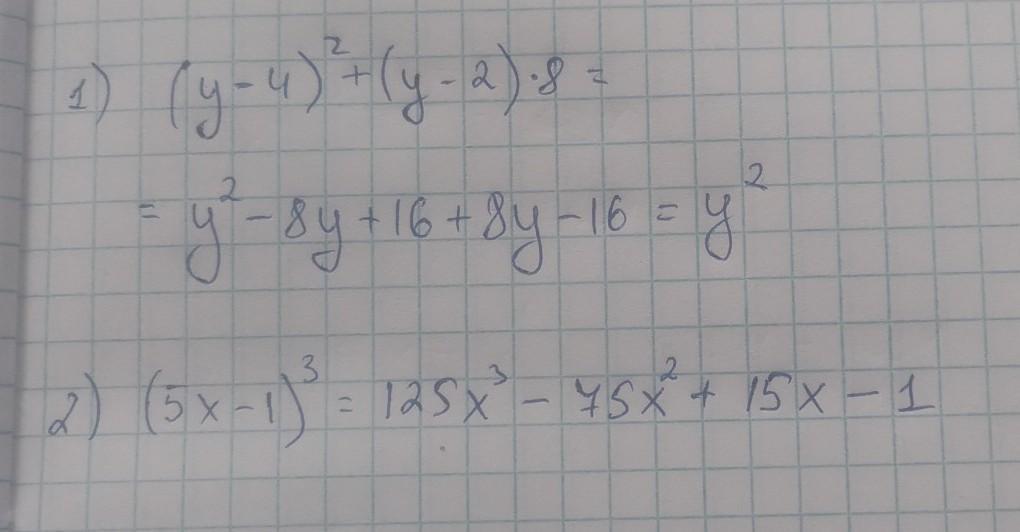 1) (y-4)²+(y-2)·8=
= y²-8y+16+8y-16 = y²
2) (5x-1)³ = 125x³ - 75x² + 15x - 1